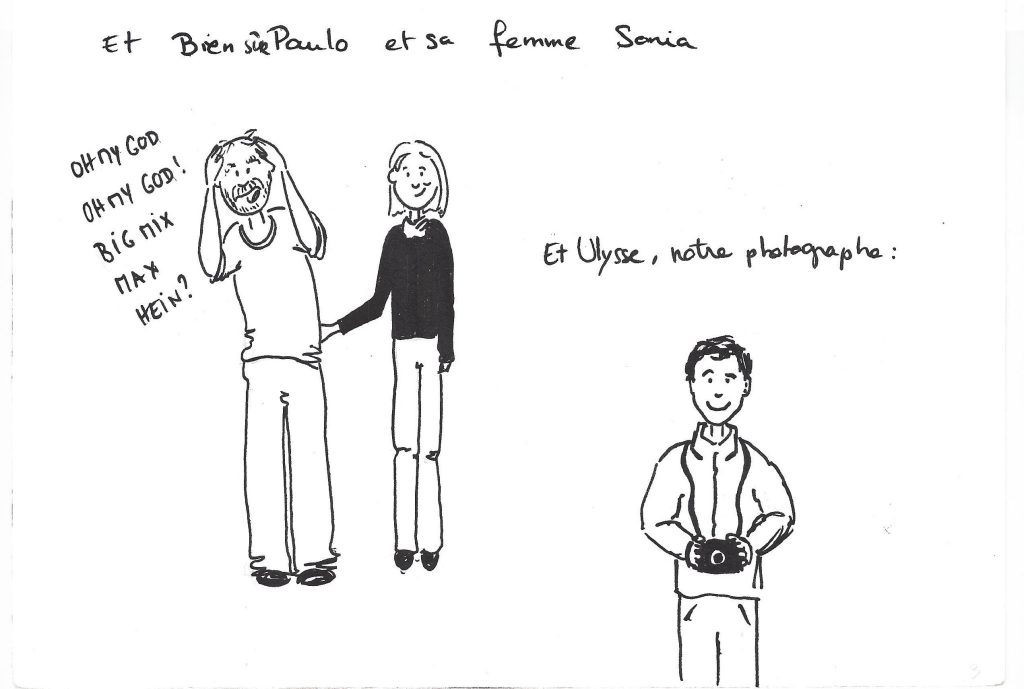 Et Bien sûr Paulo et sa femme Sonia
OH MY GOD
OH MY GOD!
BIG MIX
MAX
HEIN?
Et Ulysse, notre photographe :
3